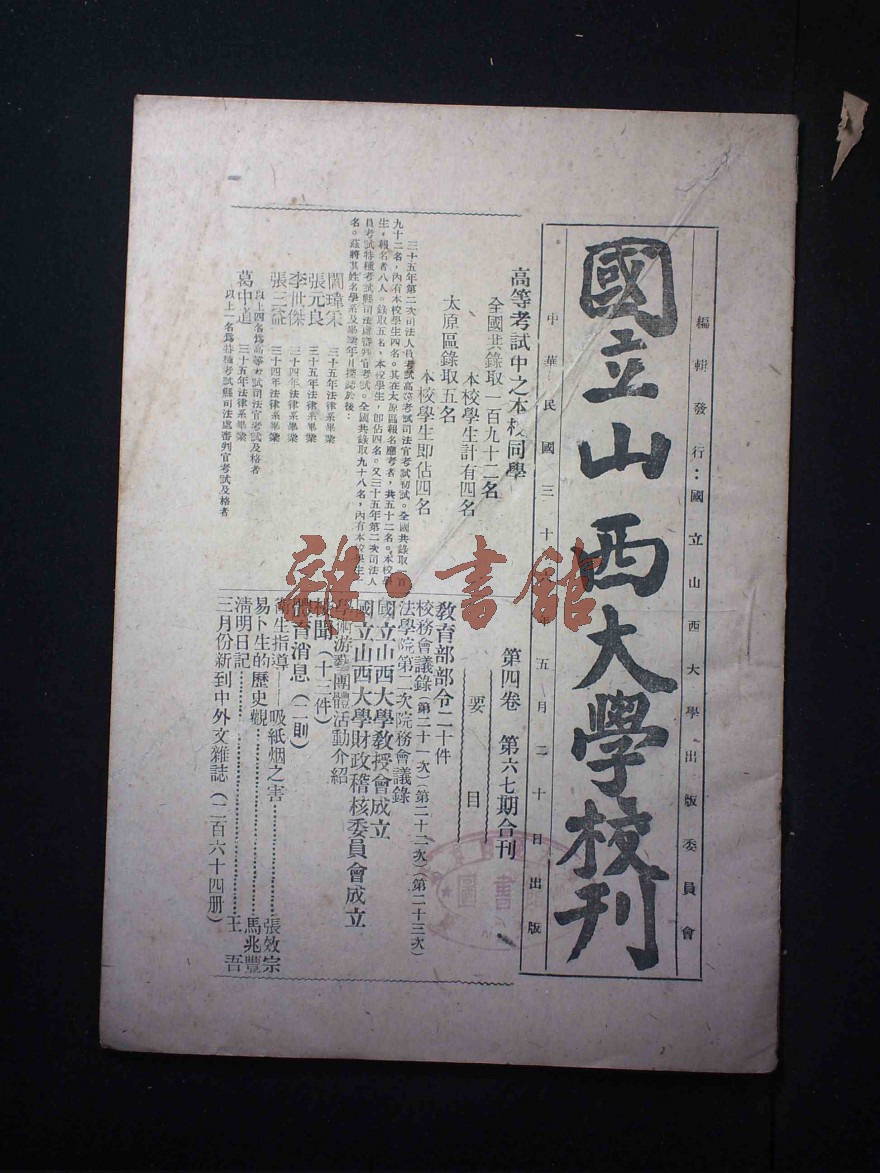 編輯發行：國立山西大學出版委員會
國立山西大學校刊
中華民國三十 年五月二十日出版
第四卷　第六七期合刊
高等考試中之本校同學
全國共錄取一百九十二名
本校學生計有四名
太原區錄取五名
本校學生即佔四名
三十五年第二次司法人員考試高等考試司法官考試初試。全國共錄取一百
九十二名，內有本校學生四名。其在太原區報名應考者，共五十二名。本校學
生，報名者八人。錄取五名，本校學生，即佔四名。又三十五年第二次司法人
員考試特種考試縣司法處審判官考試。全國共錄取九十八名，內有本校學生一
名。茲將其姓名學系及畢業年月探誌於後：
閻瑋 　三十五年法律系畢業
張元良　三十五年法律系畢業
李世傑　三十四年法律系畢業
張三益　三十四年法律系畢業
以上四名為高等考試司法官考試及格者
葛中道　三十五年法律系畢業
以上一名為特種考試縣司法處審判官考試及格者
要目
教育部部令二十件
校務會議錄（第二十一次）（第二十二次）（第二十三次）
法學院第二次院務會議錄
國立山西大學教授會成立
國立山西大學財政稽核委員會成立
學術游藝團體活動介紹
校聞（十三件）
體育消息（二則）
衛生指導——吸紙烟之害……張效宗
易卜生的歷史觀……馬兆豐
清明日記……王吾
三月份新到中外文雜誌（二百六十四册）
雜·書館